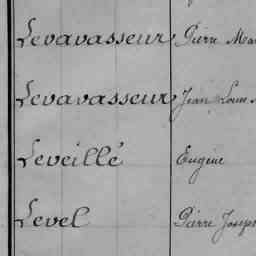 Levavasseur Pierre Ma
Levavasseur Jean Louis
Leveillé Eugène
Level Pierre Joseph